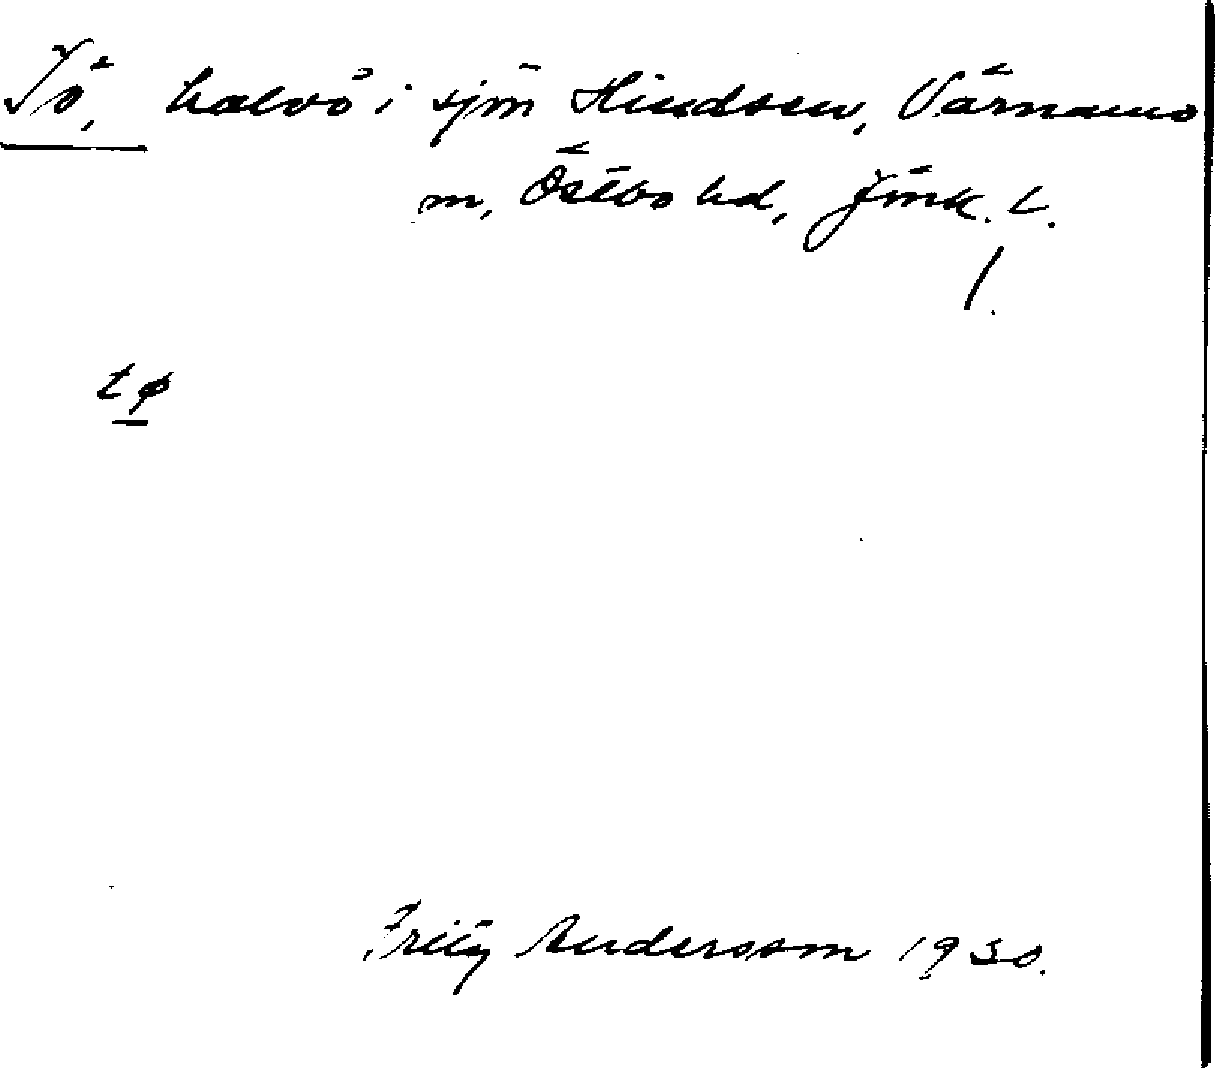 Tö, halvö i sjön Hindsen, Värnamo
sn, Östbo hd, Jönk. L.
/.
tø
Fritz Andersson 1930.